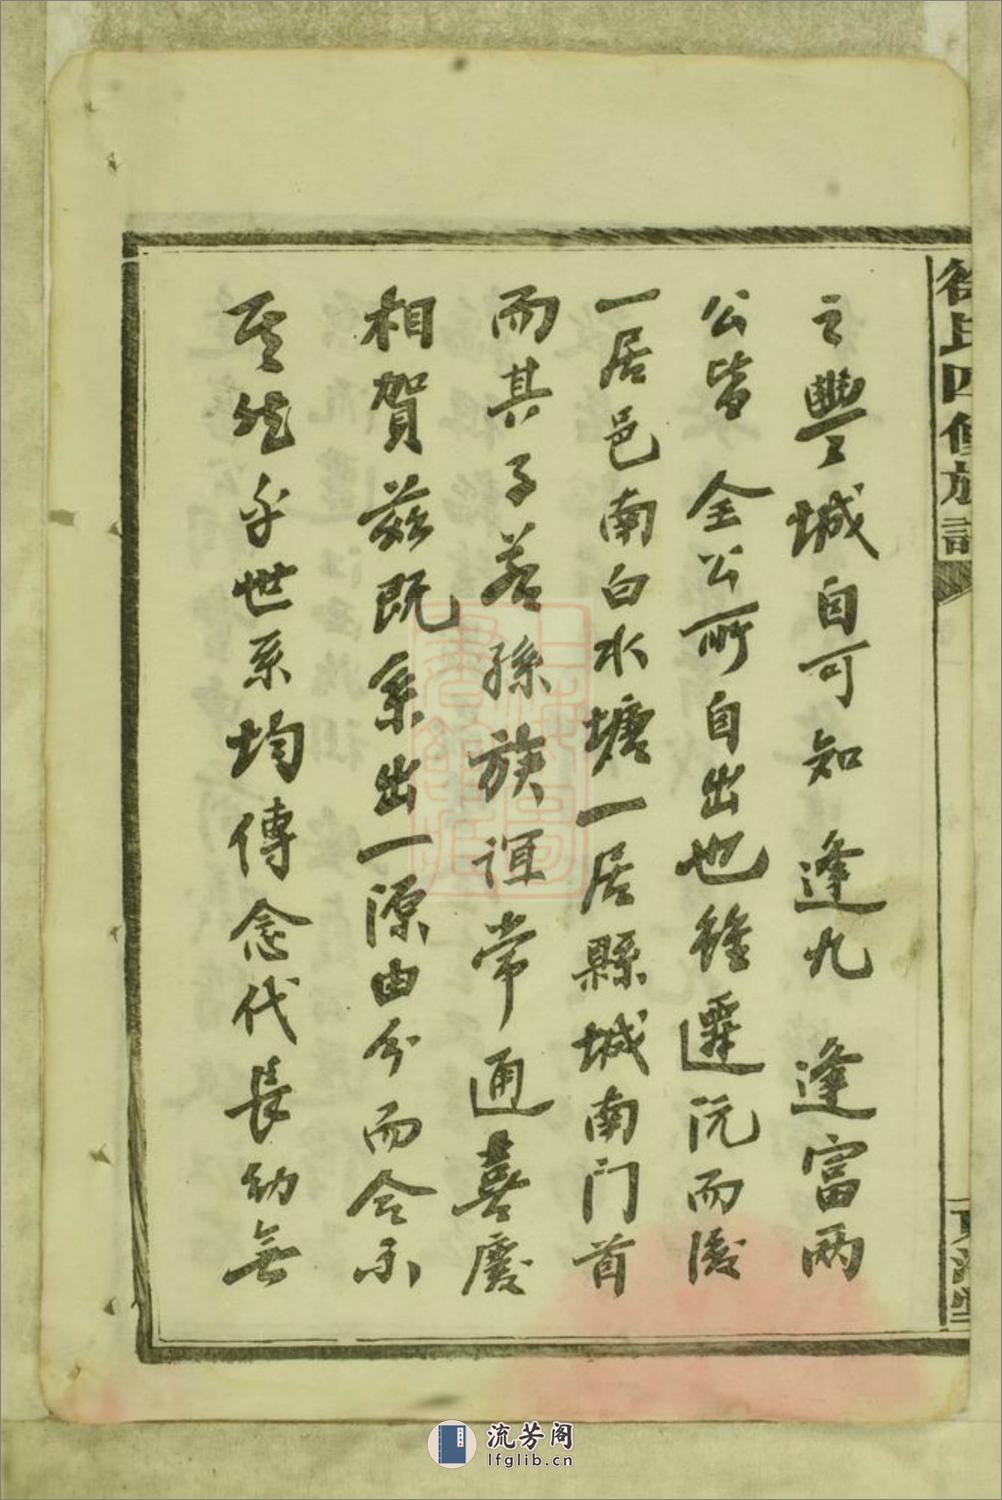 徐氏四修族譜
之豐城自可知 逢九 逢富兩
公皆 全公所自出也後遷沅而後
一居邑南白水塘一居縣城南门首
而其子若孫族誼常通喜慶
相賀茲既系出一源由分而合不
世系均傳念代長幼無
流芳阁
lfglib.cn